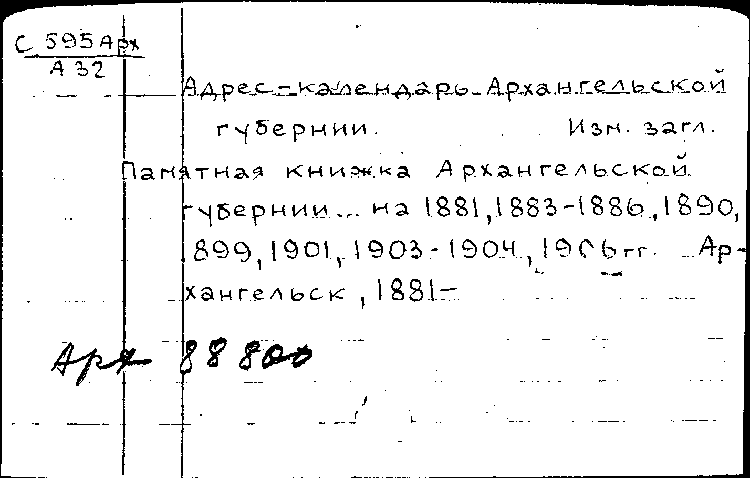 С 595Арх
А 32
Адрес-календарь Архангельской
губернии. Изм. загл.
Памятная книжка Архангельской
губернии... на 1881, 1883-1886, 1890,
1899, 1901, 1903-1904, 1906 гг. Ар-
хангельск, 1881-
Арх 88800